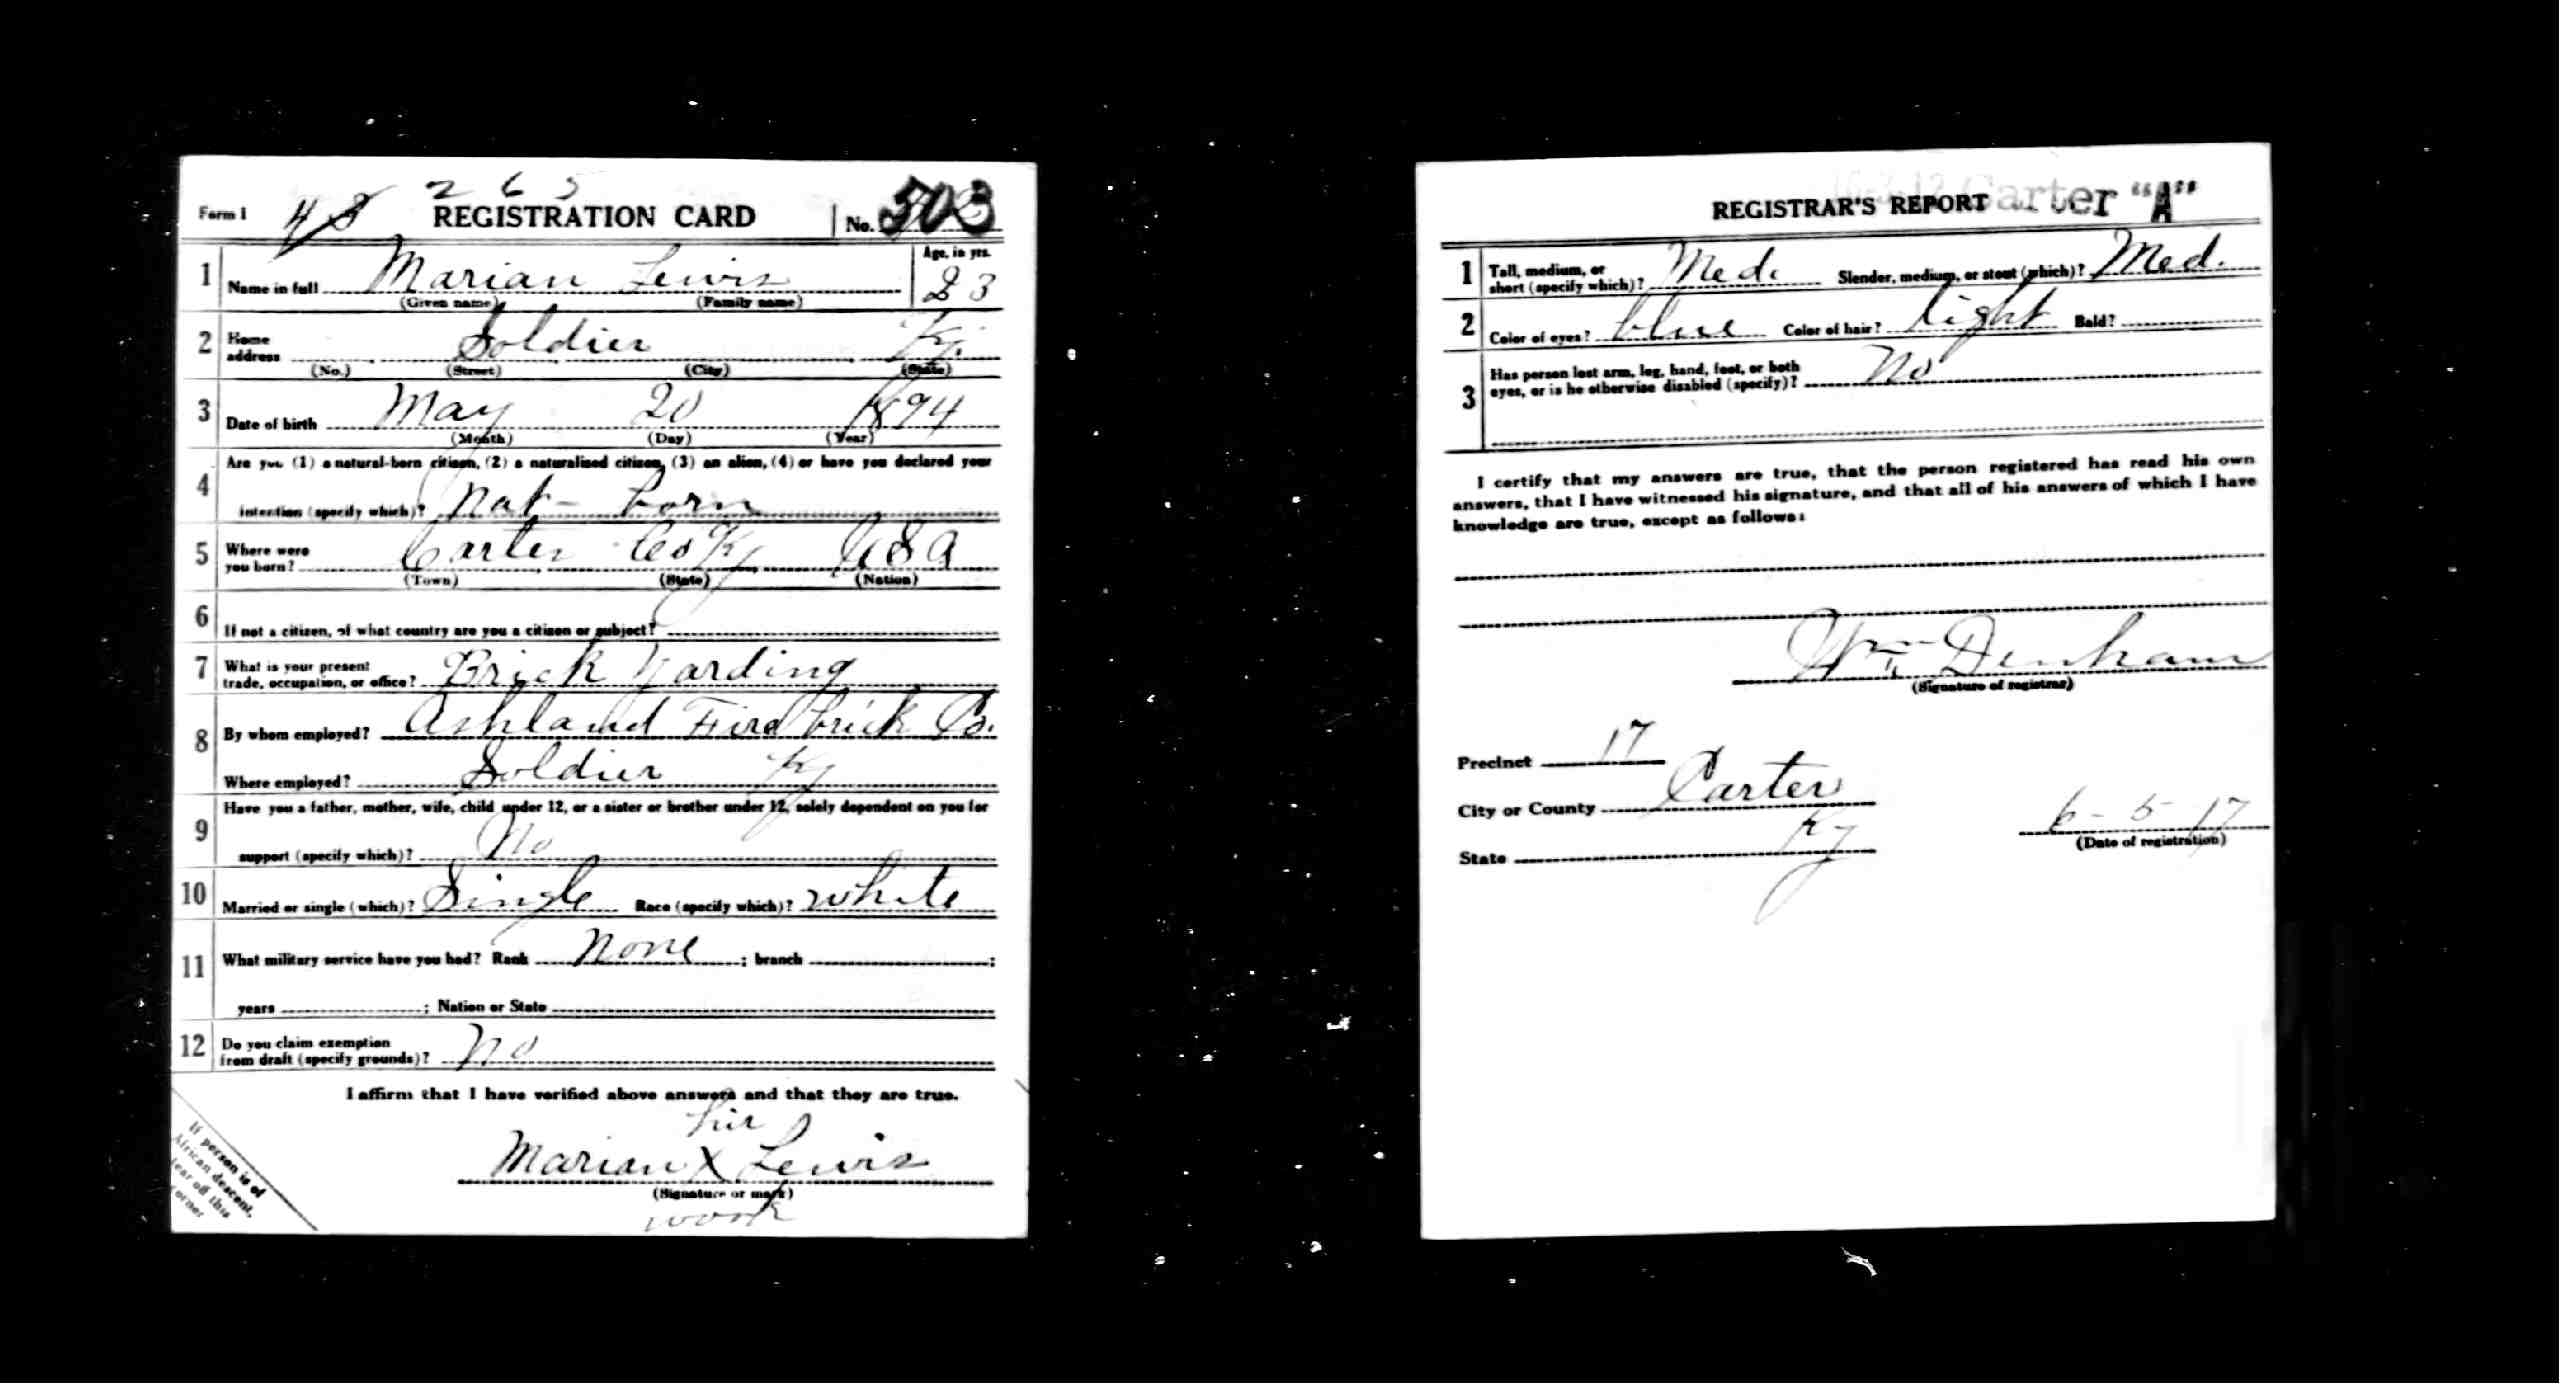 2 6 5
Form 1 48 REGISTRATION CARD No. 503
1 Name in full Marian Lewis Age, in yrs. 23
(Given name) (Family name)
2 Home address Soldier Ky.
(No.) (Street) (City) (State)
3 Date of birth May 20 1894
(Month) (Day) (Year)
4 Are you (1) a natural-born citizen, (2) a naturalized citizen, (3) an alien, (4) or have you declared your
intention (specify which)? Nat- born
5 Where were you born? Carter Co Ky USA
(Town) (State) (Nation)
6 If not a citizen, of what country are you a citizen or subject?
7 What is your present trade, occupation, or office? Brick Yarding
8 By whom employed? Ashland Fire brick Co.
Where employed? Soldier Ky
9 Have you a father, mother, wife, child under 12, or a sister or brother under 12, solely dependent on you for
support (specify which)? No
10 Married or single (which)? Single Race (specify which)? white
11 What military service have you had? Rank None ; branch ;
years ; Nation or State
12 Do you claim exemption from draft (specify grounds)? No
I affirm that I have verified above answers and that they are true.
his
Marian X Lewis
(Signature or mark)
If person is of
African descent,
tear off this
corner
REGISTRAR'S REPORT Carter "A"
1 Tall, medium, or short (specify which)? Med. Slender, medium, or stout (which)? Med.
2 Color of eyes? blue Color of hair? light Bald?
3 Has person lost arm, leg, hand, foot, or both
eyes, or is he otherwise disabled (specify)? No
I certify that my answers are true, that the person registered has read his own
answers, that I have witnessed his signature, and that all of his answers of which I have
knowledge are true, except as follows:
Wm Denham
(Signature of registrar)
Precinct 17
City or County Carter
State Ky
6-5-17
(Date of registration)